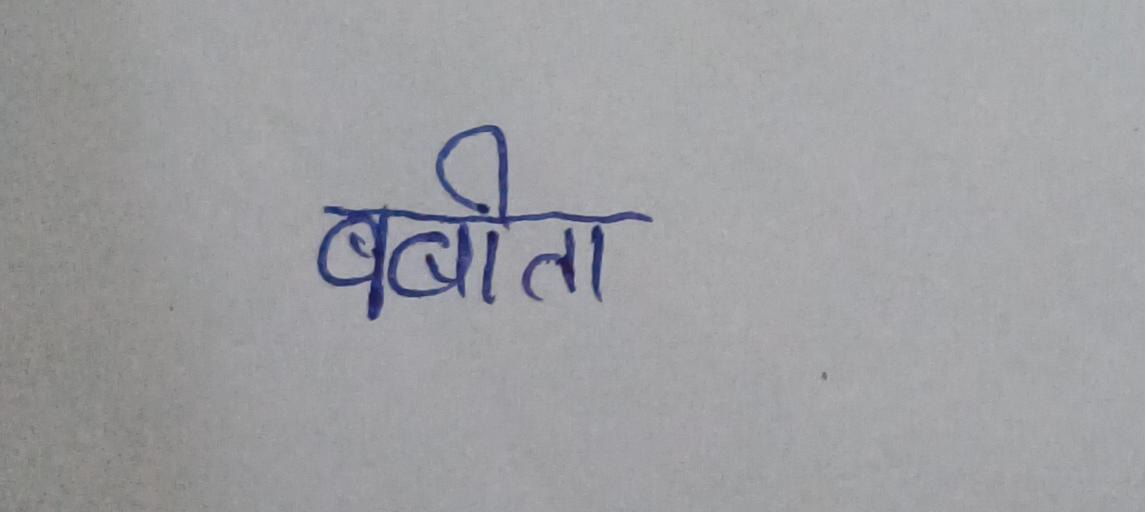 बबीता